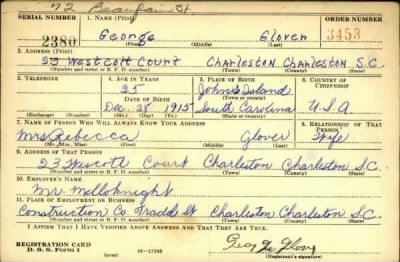 72 Beaufain St.
SERIAL NUMBER 1. NAME (Print) ORDER NUMBER
2380 George Glover 3453
(First) (Middle) (Last)
2. ADDRESS (Print)
23 Westcott Court Charleston Charleston S.C.
(Number and street or R. F. D. number) (Town) (County) (State)
3. TELEPHONE 4. AGE IN YEARS 5. PLACE OF BIRTH 6. COUNTRY OF CITIZENSHIP
25 Johns Island
DATE OF BIRTH (Town or county)
Dec. 28 1915 South Carolina U.S.A
(Exchange) (Number) (Mo.) (Day) (Yr.) (State or country)
7. NAME OF PERSON WHO WILL ALWAYS KNOW YOUR ADDRESS 8. RELATIONSHIP OF THAT PERSON
Mrs. Rebecca Glover Wife
(Mr., Mrs., Miss) (First) (Middle) (Last)
9. ADDRESS OF THAT PERSON
23 Wescott Court Charleston Charleston S.C.
(Number and street or R. F. D. number) (Town) (County) (State)
10. EMPLOYER'S NAME
Mr. Melloknight
11. PLACE OF EMPLOYMENT OR BUSINESS
Construction Co. Tradd St Charleston Charleston S.C.
(Number and street or R. F. D. number) (Town) (County) (State)
I AFFIRM THAT I HAVE VERIFIED ABOVE ANSWERS AND THAT THEY ARE TRUE.
REGISTRATION CARD
D. S. S. Form 1 16—17105
(over) (Registrant's signature)